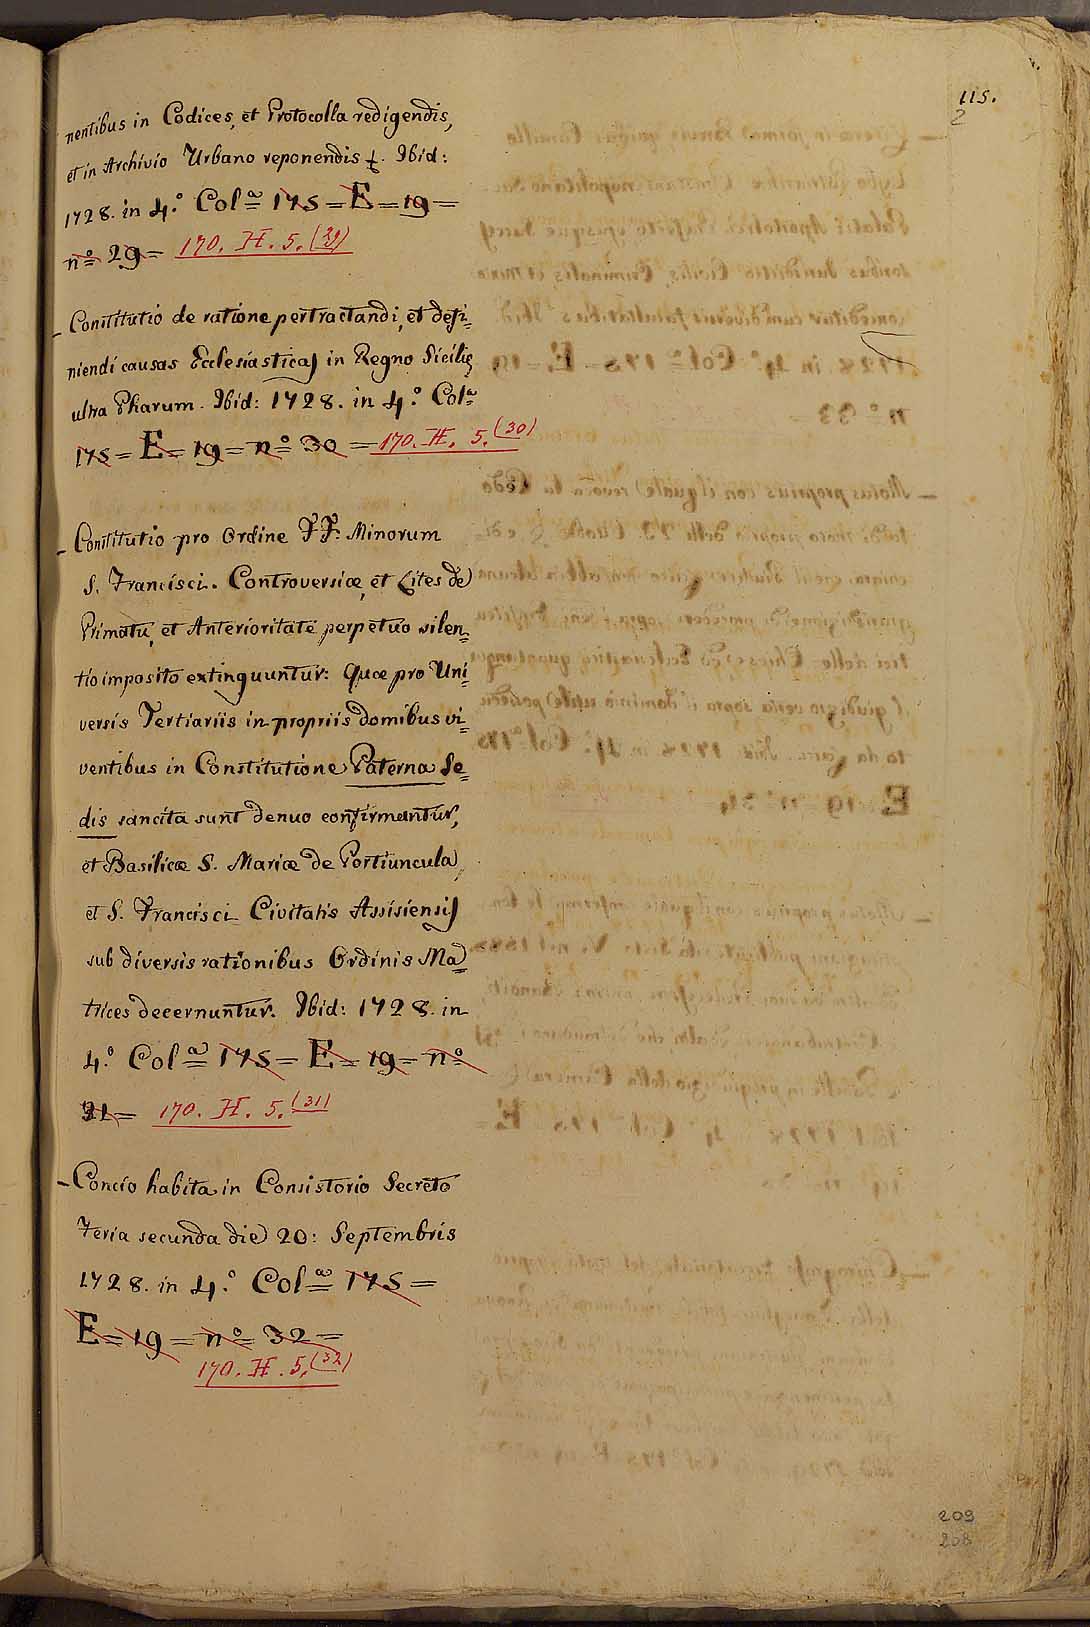 115.
2
nentibus in Codices, et Protocolla redigendis,
et in Archivio Urbano reponendis &. Ibid:
1728. in 4.° Col.ª 175 = E = 19 =
n.° 29 = 170. H. 5. (29)
- Constitutio de ratione pertractandi, et defi=
niendi causas Ecclesiasticas in Regno Sicilię
ultra Pharum. Ibid: 1728. in 4.° Col.ª
175 = E = 19 = n.° 30 = 170. H. 5. (30)
- Constitutio pro Ordine FF. Minorum
S. Francisci. Controversiæ, et Lites de
Primatu, et Anterioritate perpetuo silen=
tio imposito extinguuntur: Quæ pro Uni=
versis Tertiariis in propriis domibus vi=
ventibus in Constitutione Paterna Se=
dis sancita sunt denuo confirmantur,
et Basilicæ S. Mariæ de Portiuncula,
et S. Francisci Civitatis Assisiensis
sub diversis rationibus Ordinis Ma=
trices decernuntur. Ibid: 1728. in
4.° Col.ª 175 = E = 19 = n.°
31 = 170. H. 5. (31)
- Concio habita in Consistorio Secreto
Feria secunda die 20: Septembris
1728. in 4.° Col.ª 175 =
E = 19 = n.° 32 =
170. H. 5. (32)
209
208